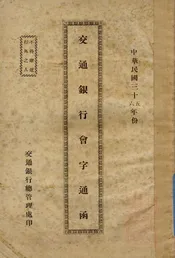 中華民國三十五六年份
交通銀行會字通函
交通銀行總管理處印